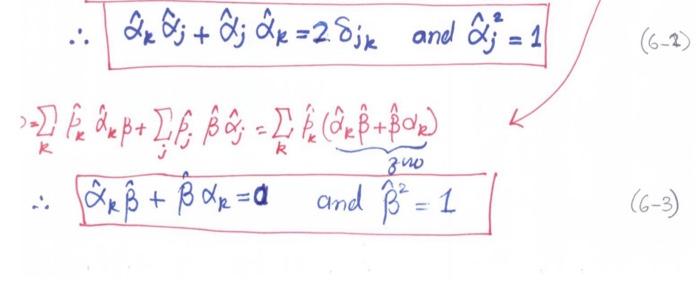 ∴ α̂ₖ α̂ⱼ + α̂ⱼ α̂ₖ = 2 δⱼₖ and α̂ⱼ² = 1 (6-2)
)=∑ₖ p̂ₖ α̂ₖ β + ∑ⱼ p̂ⱼ β̂ α̂ⱼ = ∑ₖ p̂ₖ (α̂ₖ β̂ + β̂ αₖ)
zero
∴ α̂ₖ β̂ + β̂ αₖ = 0 and β̂² = 1 (6-3)